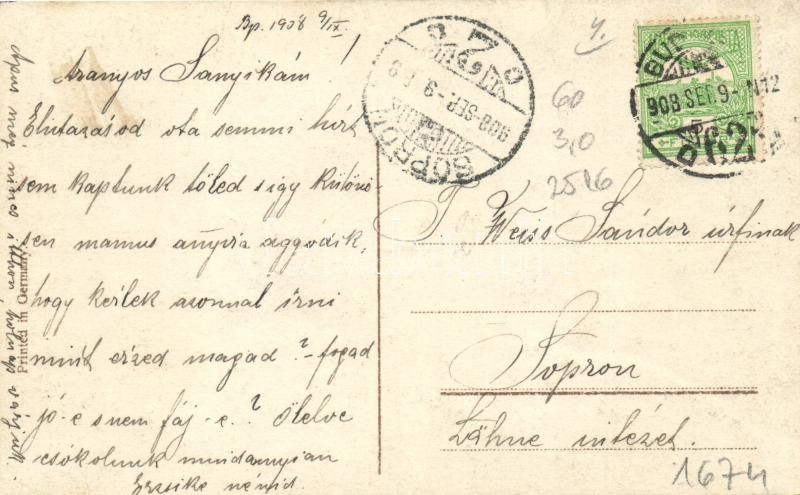 Bp. 1908 9/IX.
Aranyos Sanyikám!
Elutazásod ota semmi hírt
sem kaptunk tőled s igy különö-
sen mamus annyira aggódik,
hogy kérlek azonnal irni
mint érzed magad? - fogad
jó-e s nem fáj-e? Ölelve
csókolunk mindannyian
Erzsike nénid.
Apa még nincs itthon, holnap várjuk.
Printed in Germany
SOPRON
908 SEP. -9
BUD
908 SEP. 9 - N12
62
4.
60
3,0
2516
T. Weiss Sándor úrfinak
Sopron
Lähne intézet.
1674